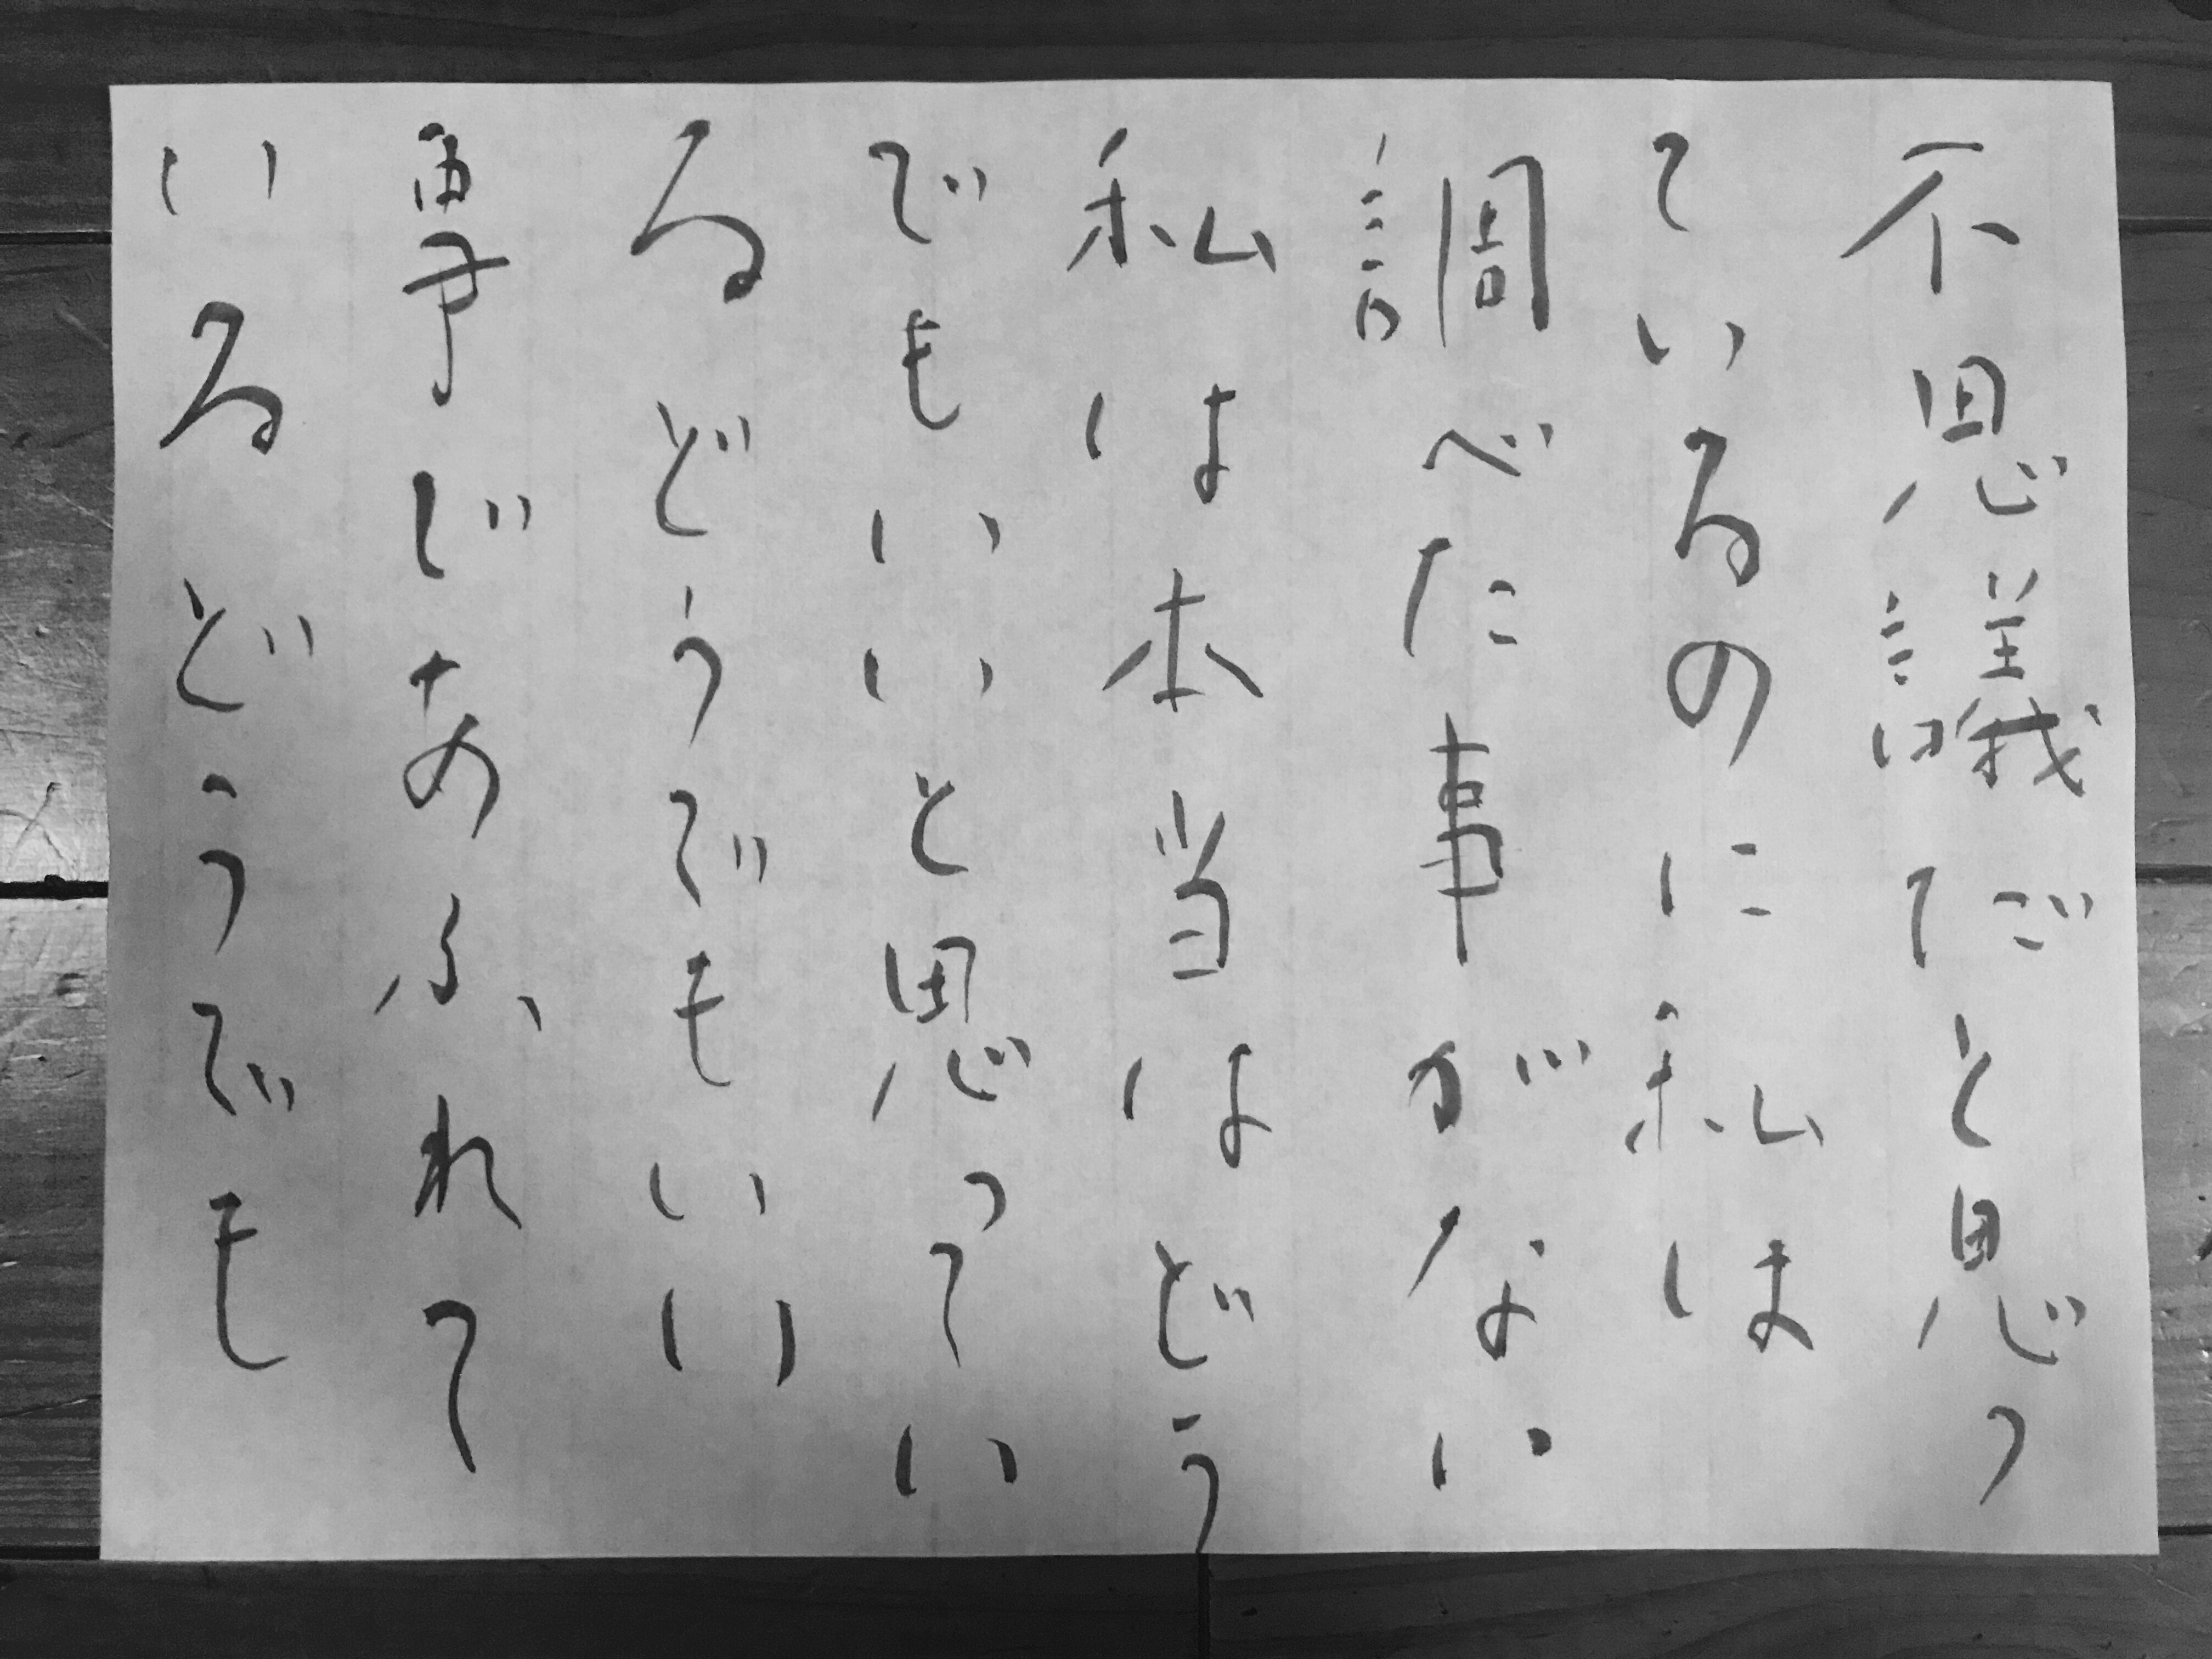 不思議だと思っ
ているのに私は
調べた事がない
私は本当はどう
でもいいと思ってい
るどうでもいい
事じあふれて
いるどうでも